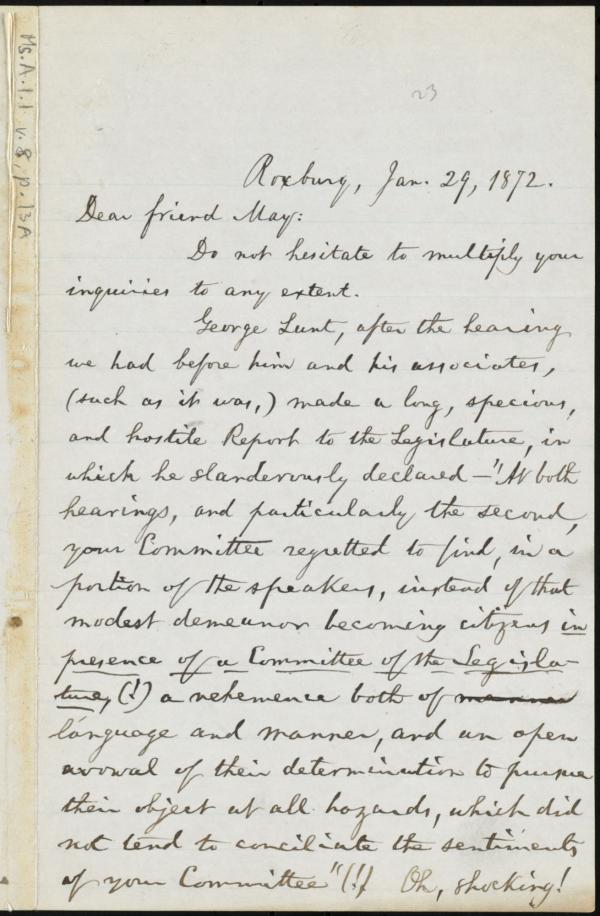 Ms.A.1.1 v.8, p.13A
23
Roxbury, Jan. 29, 1872.
Dear friend May:
Do not hesitate to multiply your
inquiries to any extent.
George Lunt, after the hearing
we had before him and his associates,
(such as it was,) made a long, specious,
and hostile Report to the Legislature, in
which he slanderously declared—"At both
hearings, and particularly the second,
your Committee regretted to find, in a
portion of the speakers, instead of that
modest demeanor becoming citizens in
presence of a Committee of the Legisla-
ture, (!) a vehemence both of manner
language and manner, and an open
avowal of their determination to pursue
their object at all hazards, which did
not tend to conciliate the sentiments
of your Committee"(!!) Oh, shocking!